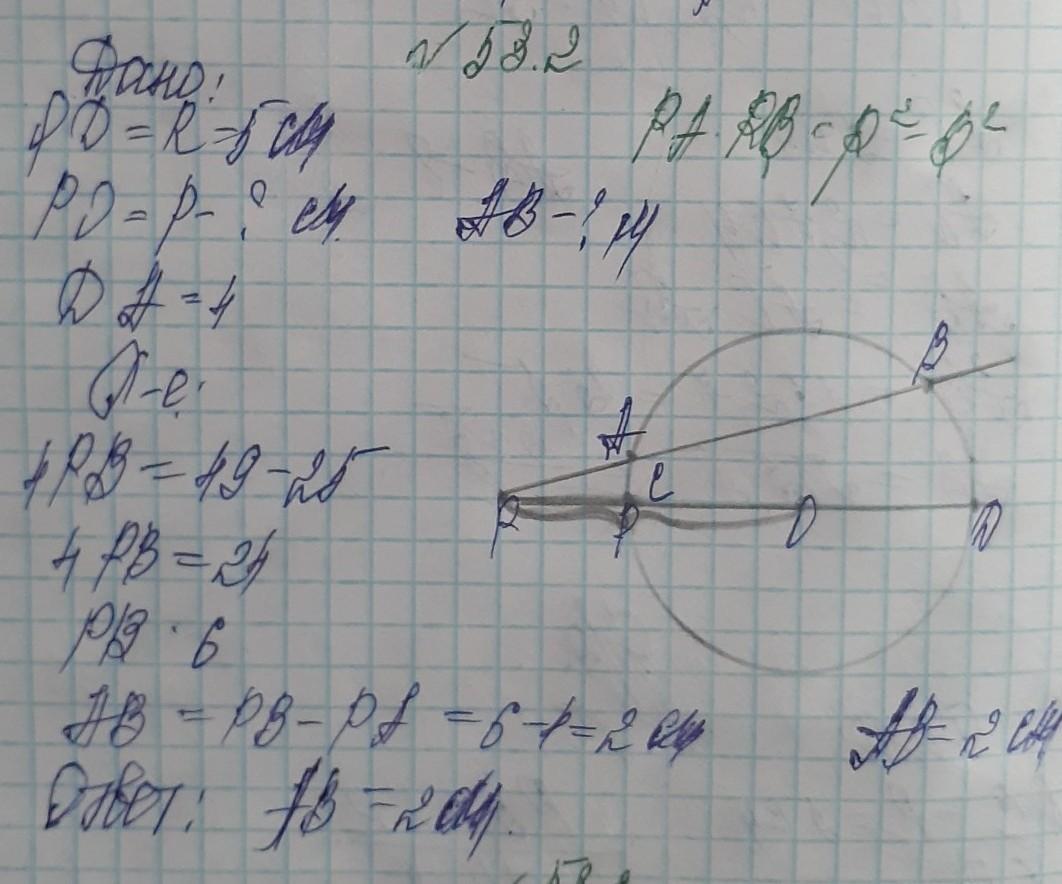 № 53.2
Дано:
РО = R = 5 см
PA · PB = p² - R²
PO = p - ? см
AB - ? см
PA = 4
Р-е:
4PB = 49 - 25
4PB = 24
PB = 6
AB = PB - PA = 6 - 4 = 2 см
AB = 2 см
Ответ: AB = 2 см.
A
B
C
P
P
O
D